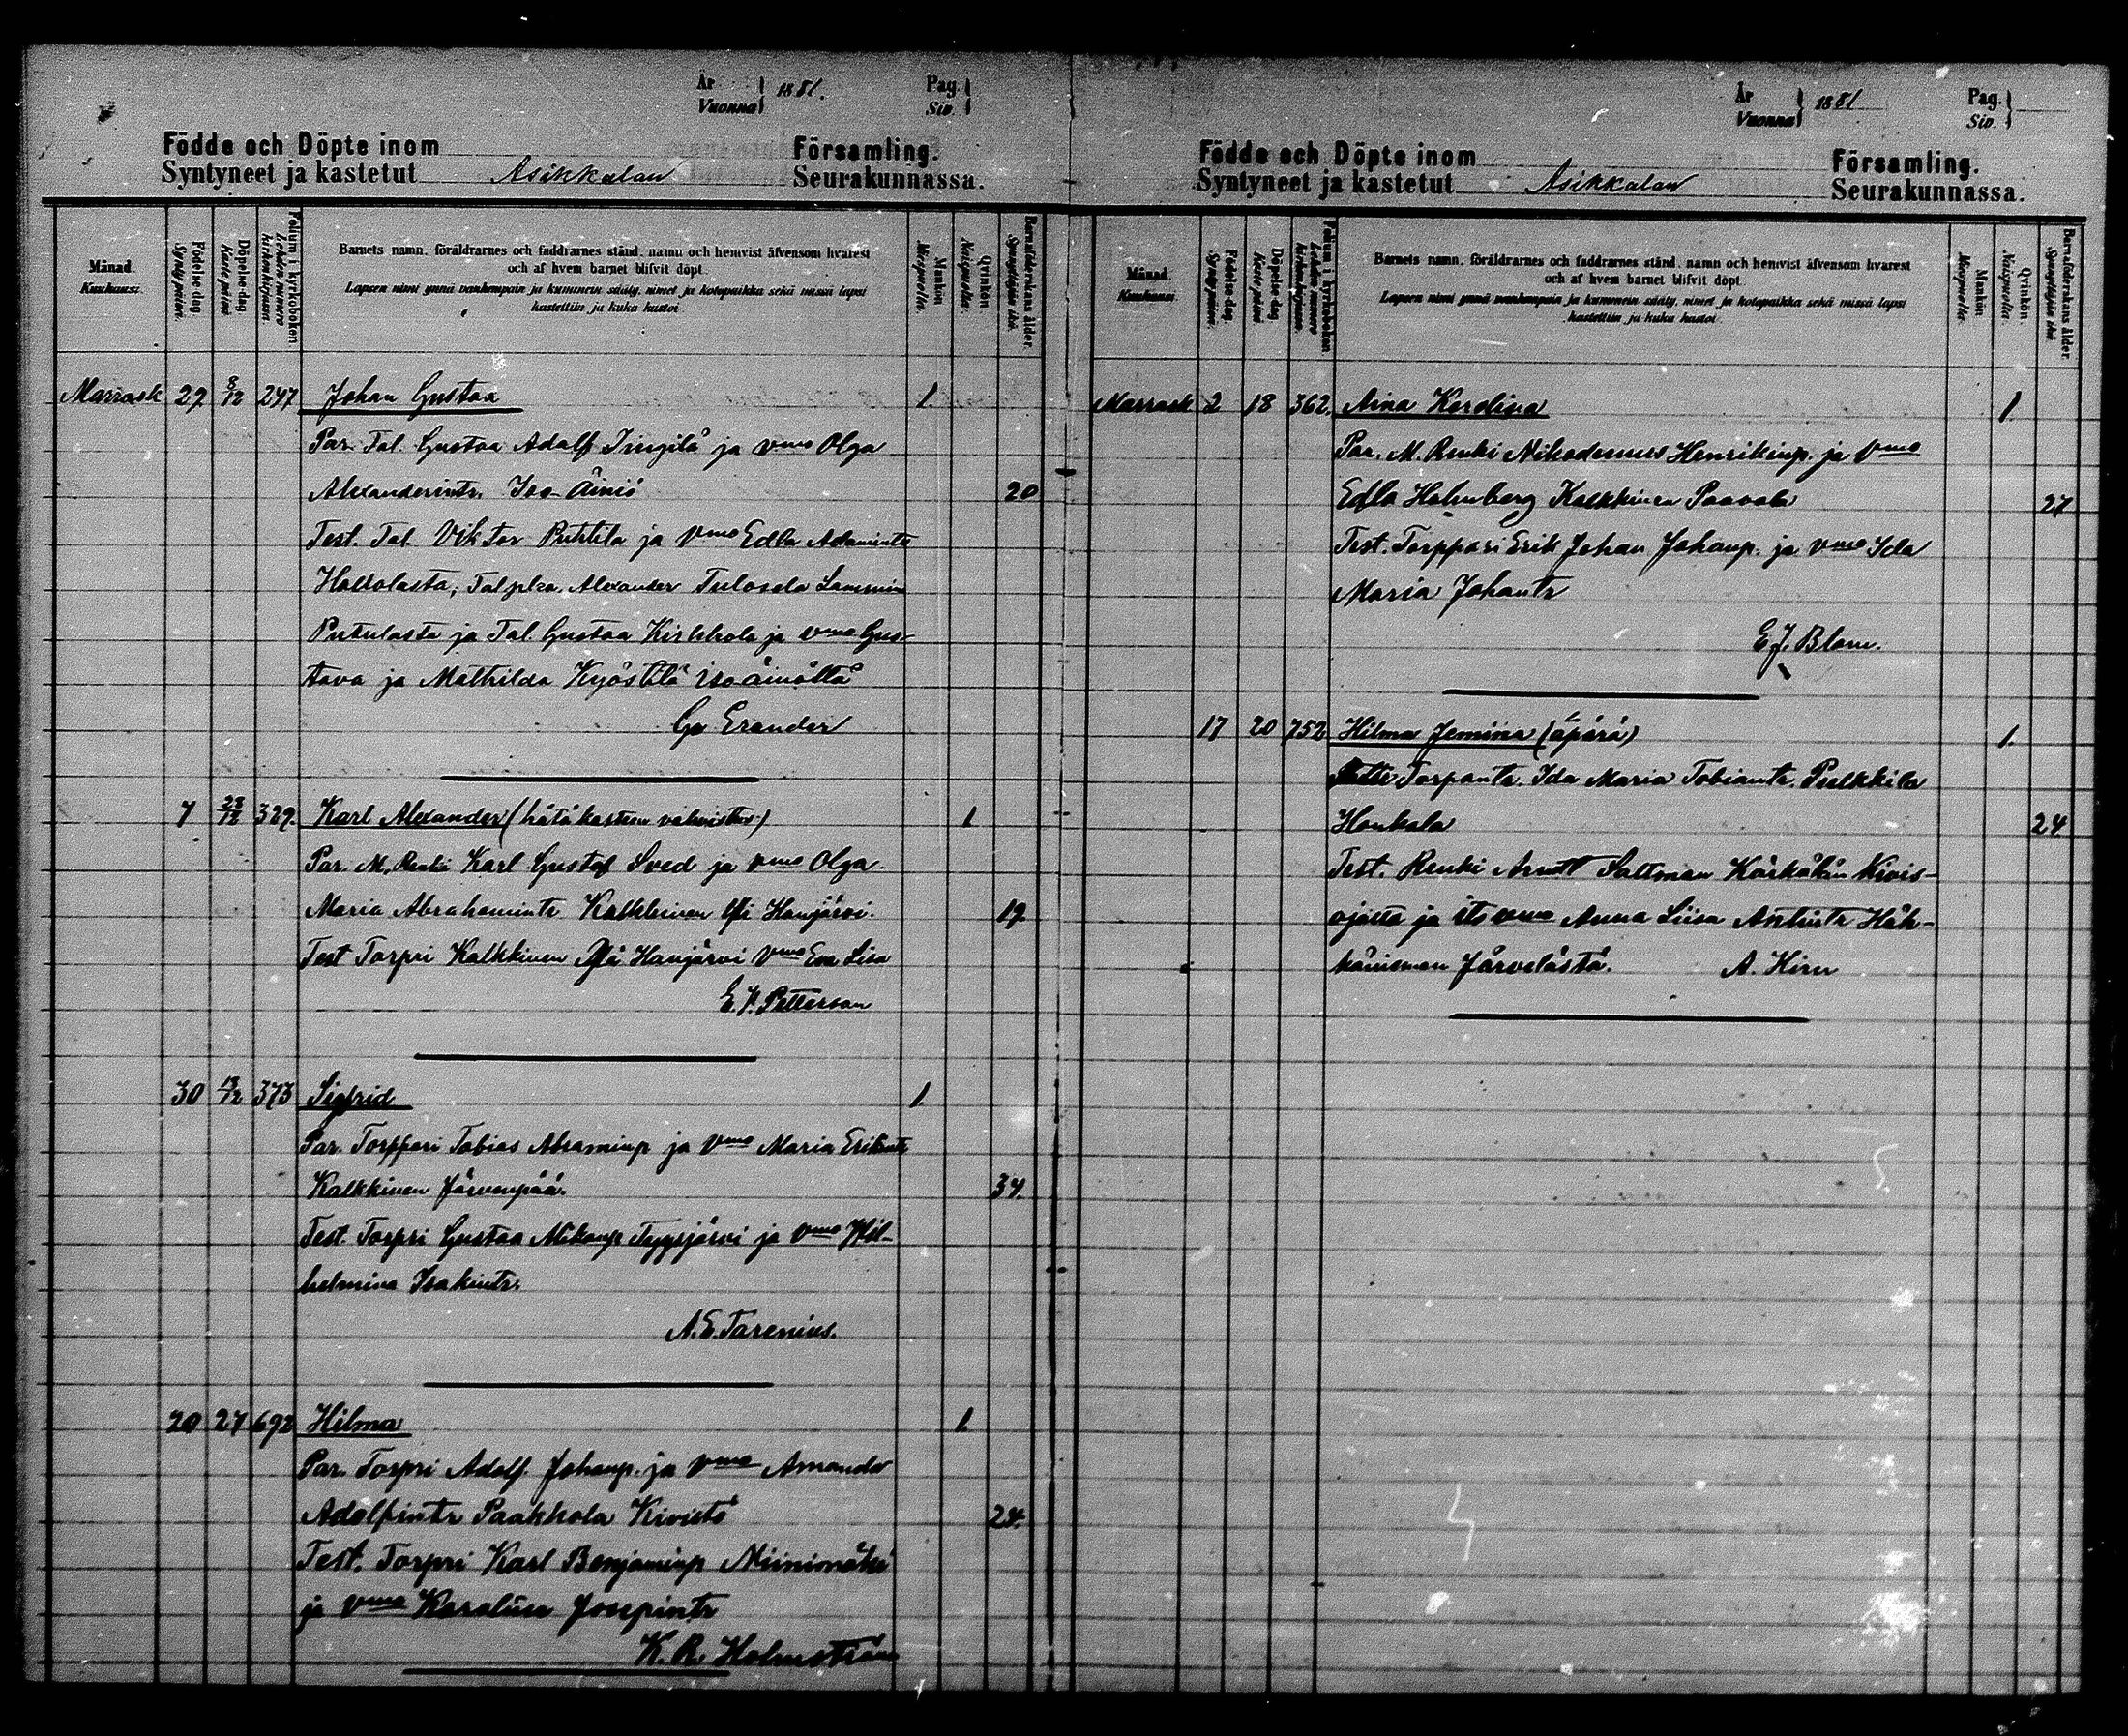 År
Vuonna } 1881.
Pag.
Siv. }
Födde och Döpte inom
Syntyneet ja kastetut Asikkalan
Församling.
Seurakunnassa.
Månad. Kuukausi.
Födelse-dag. Syntypäivä.
Döpelse-dag. Kastepäivä
Folium i kyrkoboken. Lehden numero kirkonkirjassa.
Barnets namn, föräldrarnes och faddrarnes stånd, namn och hemvist äfvensom hvarest
och af hvem barnet blifvit döpt.
Lapsen nimi ynnä vanhempain ja kummein sääty, nimet ja kotopaikka sekä missä lapsi
kastettiin ja kuka kastoi
Mankön Miespuolia.
Qvinkön. Naispuolia.
Barnaföderskans ålder. Synnyttäjän ikä.
Marrask 29 8/12 247 Johan Gustaa 1.
Par. Tal. Gustaa Adolf Iingilä ja vmo Olga
Alexanderintr. Iso-Äiniö 20
Test. Tal. Viktor Puttila ja Vmo Edla Adamintr
Hollolasta, Talplra. Alexander Tulosela Lammin
Putulasta ja Tal. Gustaa Kirkkola ja vmo Gus-
tava ja Mathilda Kyöstilä isoäiniöltä
G. Erander
7 28/12 329. Karl Alexander (hätäkasteen vahvistus.) 1
Par. M. Renki Karl Gustaf Sved ja vmo Olga
Maria Abrahamintr Kalkkinen Hanjärvi. 19
Test Torpri Kalkkinen Hanjärvi Vmo Eva Lisa
E. F. Petterson
30 13/12 373 Sigfrid 1.
Par. Torppari Tobias Abraminp ja Vmo Maria Erikintr
Kalkkinen Järvenpää. 34.
Test. Torpri Gustaa Mikonp Tyyrjärvi ja Vmo Wil-
helmina Isakintr.
A. E. Tarenius.
20 27 692 Hilma 1.
Par. Torpri Adolf. Johanp. ja Vmo Amanda
Adolfintr Paakkola Kivistö 24.
Test. Torpri Karl Benjaminp Niinimäki
ja Vmo Karoliina Josepintr
K. R. Holmström
År
Vuonna } 1881
Pag.
Siv. }
Födde och Döpte inom
Syntyneet ja kastetut Asikkalan
Församling.
Seurakunnassa.
Månad. Kuukausi.
Födelse-dag. Syntypäivä.
Döpelse-dag. Kastepäivä
Folium i kyrkoboken. Lehden numero kirkonkirjassa.
Barnets namn, föräldrarnes och faddrarnes stånd, namn och hemvist äfvensom hvarest
och af hvem barnet blifvit döpt.
Lapsen nimi ynnä vanhempain ja kummein sääty, nimet ja kotopaikka sekä missä lapsi
kastettiin ja kuka kastoi
Mankön Miespuolia.
Qvinkön. Naispuolia.
Barnaföderskans ålder. Synnyttäjän ikä.
Marrask 2 18 362. Aina Karolina 1.
Par. M. Renki Nikodemus Henrikinp. ja Vmo
Edla Holmberg Kalkkinen Paavola 27
Test. Torppari Erik Johan Johanp. ja vmo Ida
Maria Johantr
E. J. Blom.
17 20 752 Hilma Jemiina (äpärä) 1.
Torpantr. Ida Maria Tobiantr. Pulkkila
Honkala 24
Test. Renki Saltman Kärkölän Kivis-
ojasta ja its vmo Anna Liisa Antintr Häh-
käniemen Järvelästä. A. Hirn